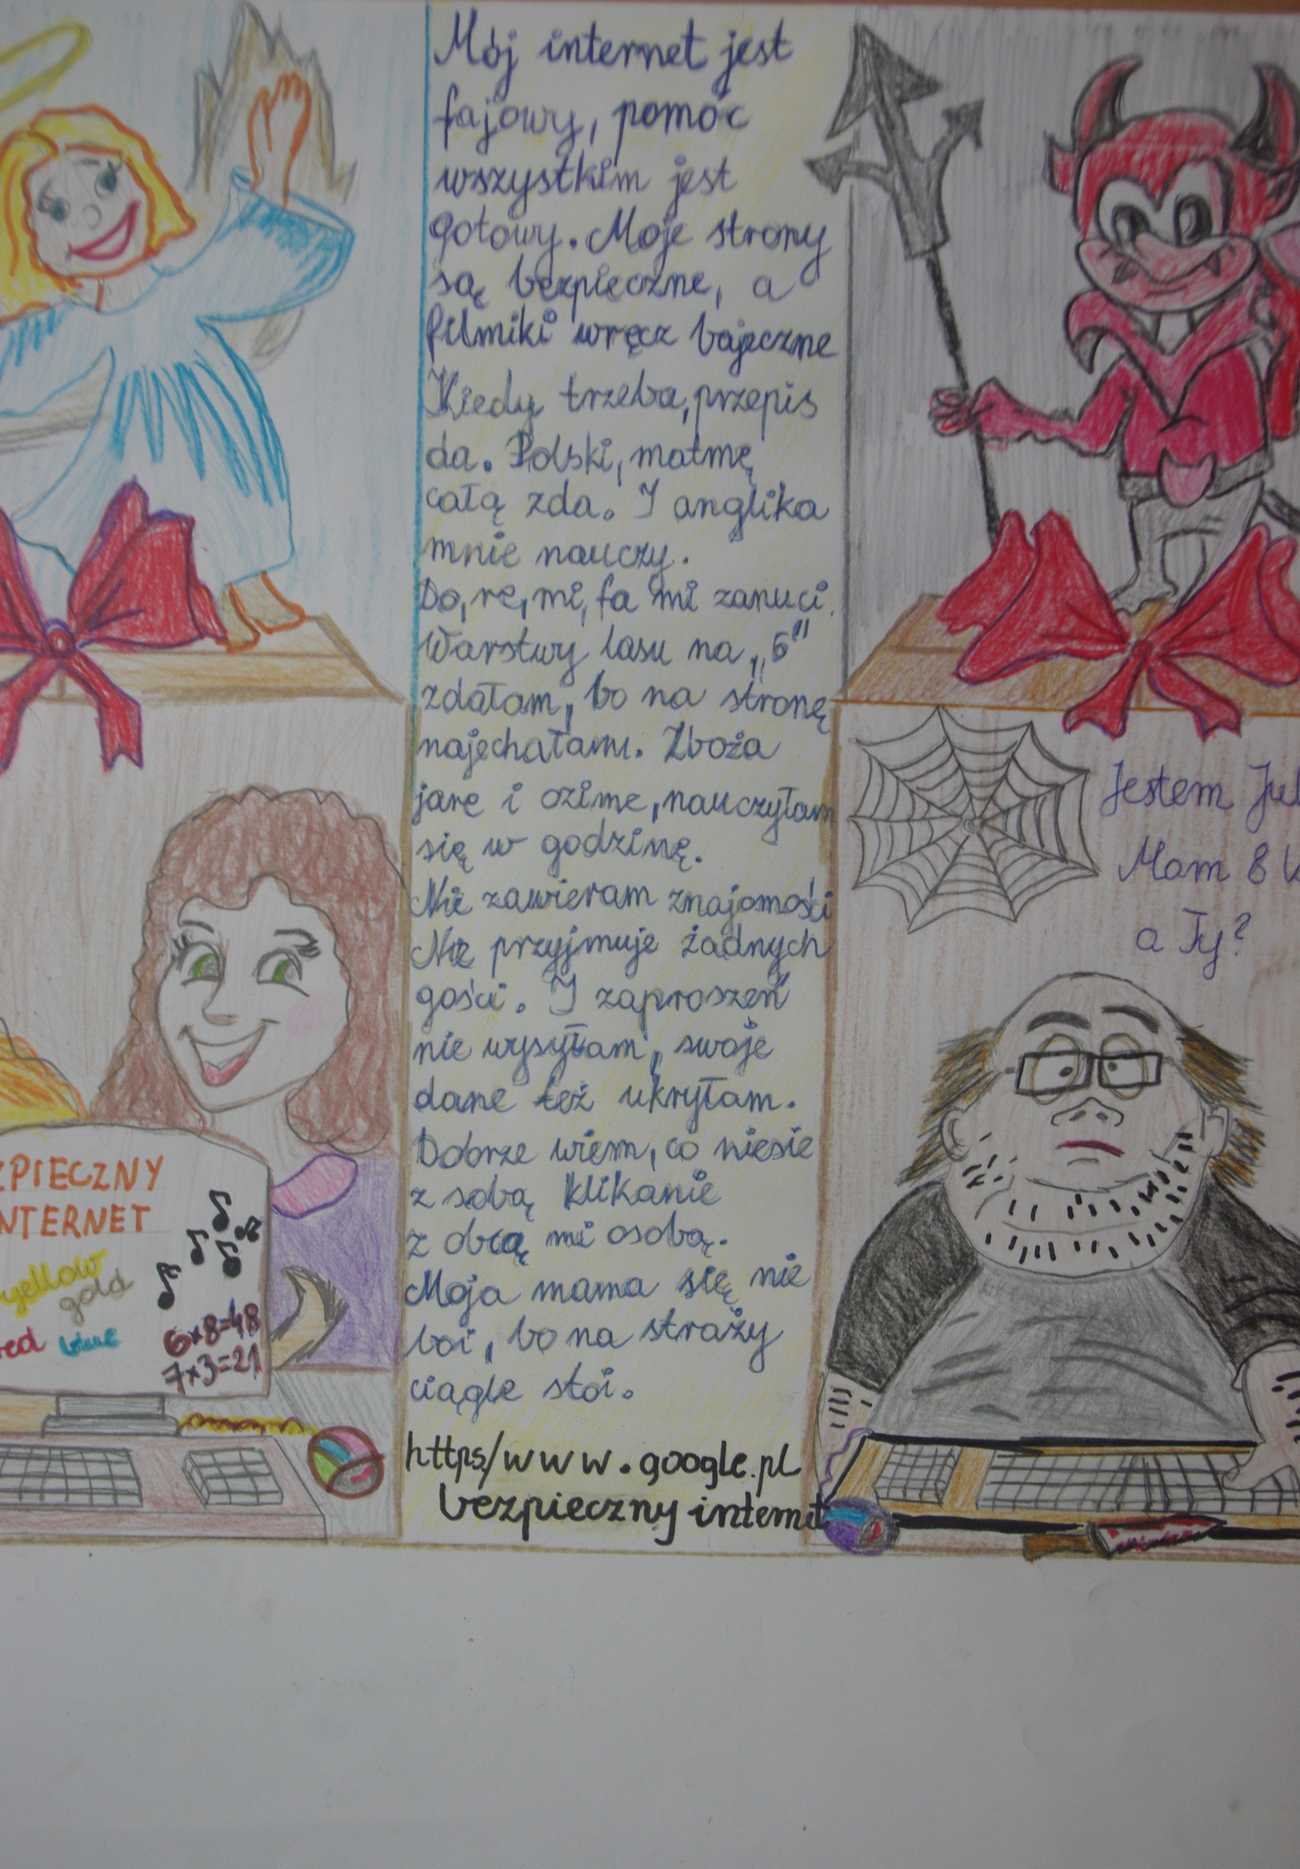 Mój internet jest
fajowy, pomóc
wszystkim jest
gotowy. Moje strony
są bezpieczne, a
filmiki wręcz bajeczne
Kiedy trzeba, przepis
da. Polski, matmę
całą zda. I anglika
mnie nauczy.
Do, re, mi, fa mi zanuci.
Warstwy lasu na „5"
zdałam, bo na stronę
najechałam. Zboża
jare i ozime, nauczyłam
się w godzinę.
Nie zawieram znajomości
Nie przyjmuje żadnych
gości. I zaproszeń
nie wysyłam, swoje
dane też ukryłam.
Dobrze wiem, co niesie
z sobą klikanie
z obcą mi osobą.
Moja mama się nie
boi, bo na straży
ciągle stoi.
https/www.google.pl
bezpieczny internet
ZPIECZNY
NTERNET
yellow
gold
red blue
6x8=48
7x3=21
Jestem Jul
Mam 8 l
a Ty?